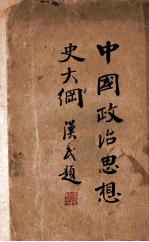 中國政治思想
史大綱 漢民題